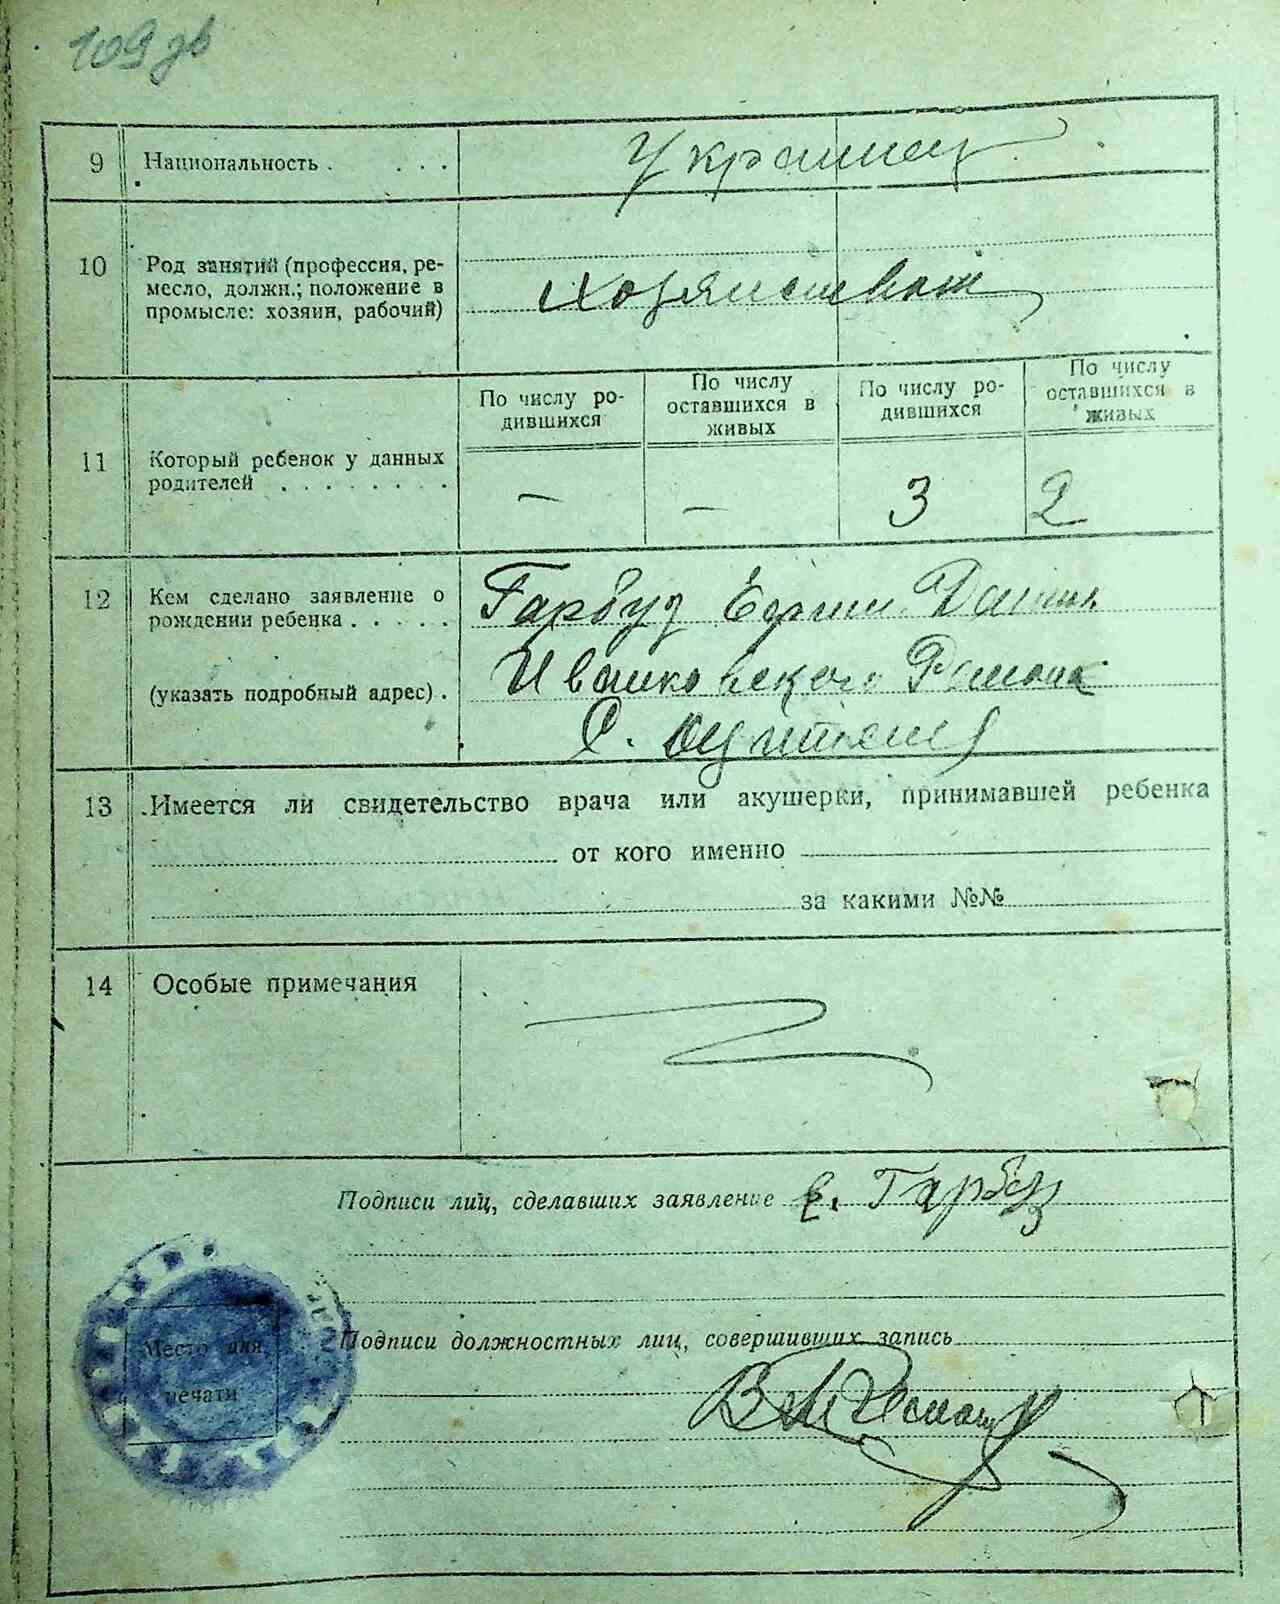 109 зв
9 Национальность . . . . Украинец
10 Род занятий (профессия, ре-
месло, должн.; положение в
промысле: хозяин, рабочий)
По числу ро-
дившихся
По числу
оставшихся в
живых
По числу ро-
дившихся
По числу
оставшихся в
живых
11 Который ребенок у данных
родителей . . . . . . . .
— — 3 2
12 Кем сделано заявление о
рождении ребенка . . . . .
(указать подробный адрес) .
Гарбуз
Иваньковского Района
С.
13 Имеется ли свидетельство врача или акушерки, принимавшей ребенка
от кого именно
за какими №№
14 Особые примечания
Подписи лиц, сделавших заявление Е. Гарбуз
Подписи должностных лиц, совершивших запись
Место для
печати